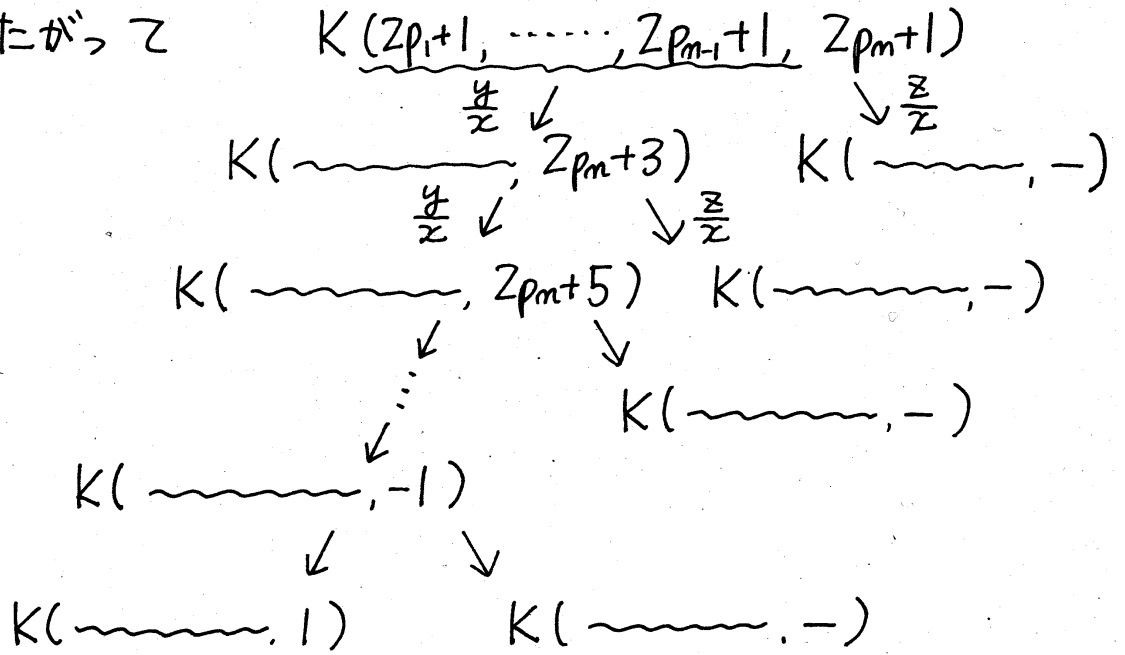 たがって K(2p₁+1, ……, 2pₙ₋₁+1, 2pₙ+1)
y/x ↙ ↘ z/x
K( ～～～, 2pₙ+3) K( ～～～, −)
y/x ↙ ↘ z/x
K( ～～～, 2pₙ+5) K( ～～～, −)
↙ ↘
⋰ K( ～～～, −)
↙
K( ～～～, -1)
↙ ↘
K( ～～～, 1) K( ～～～, −)